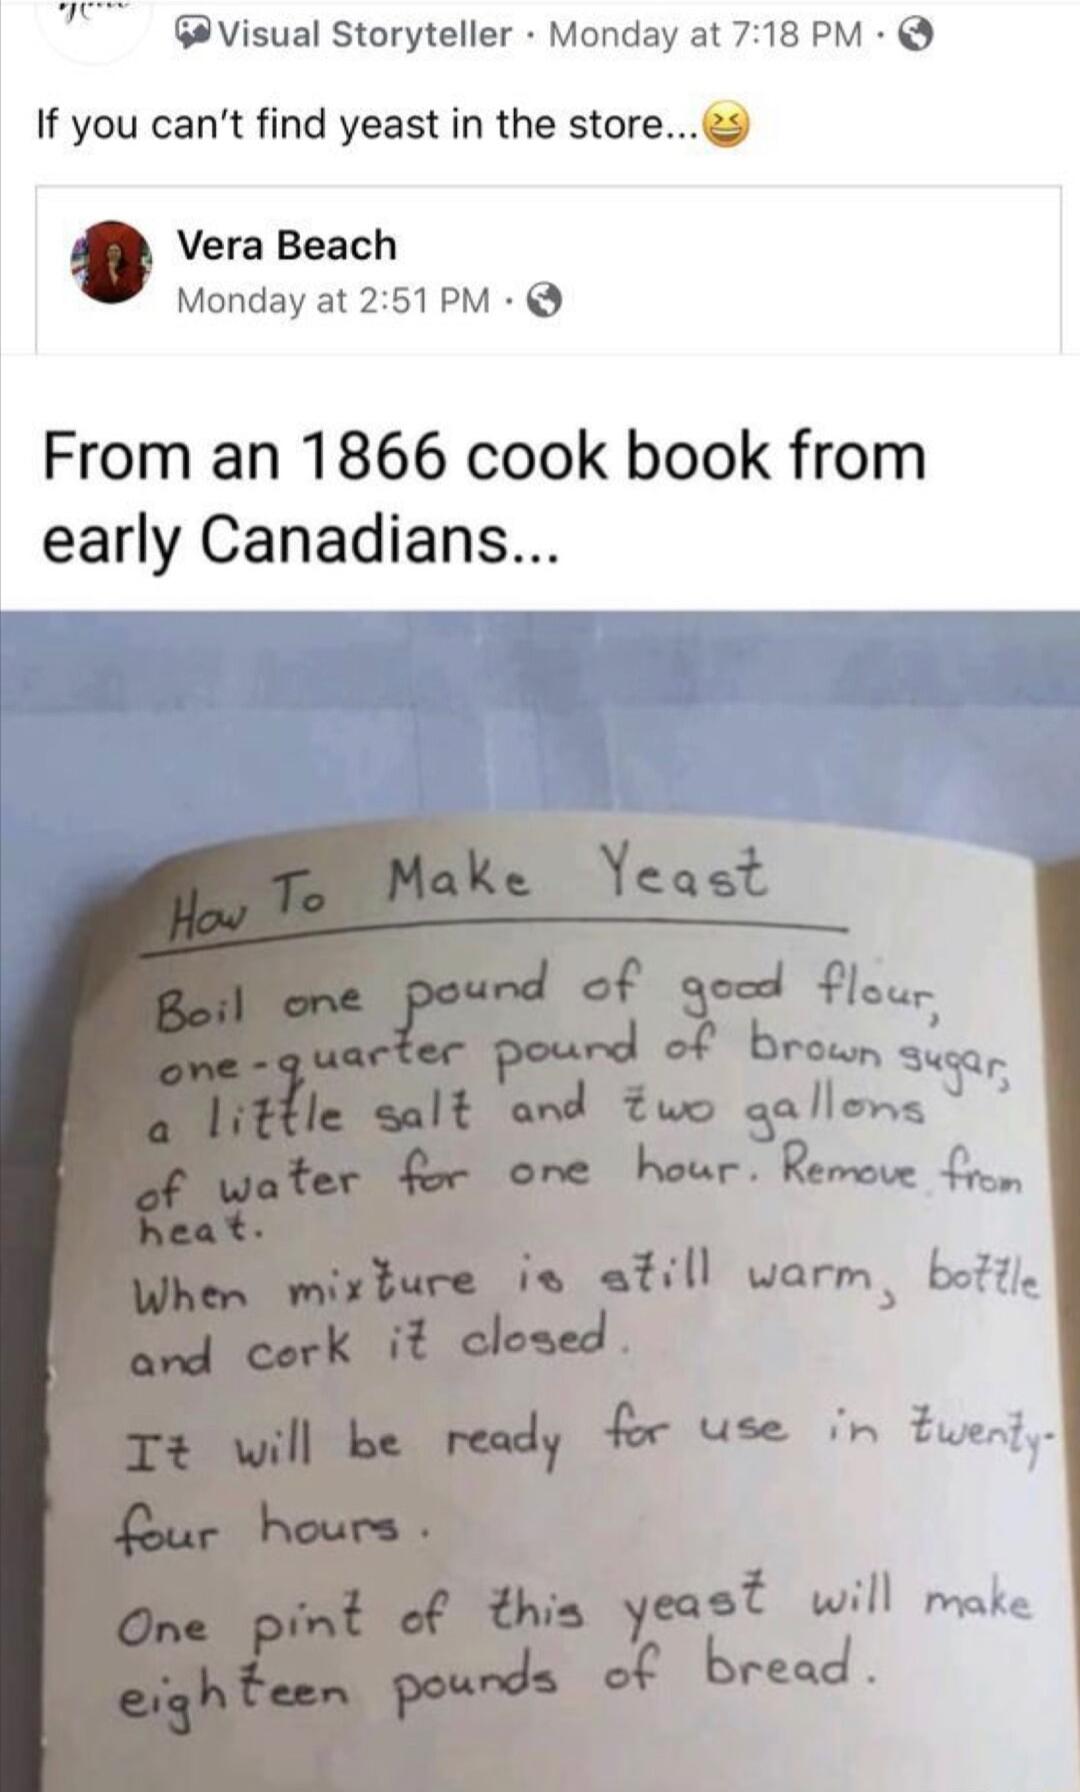 Visual Storyteller · Monday at 7:18 PM ·
If you can't find yeast in the store...😆
Vera Beach
Monday at 2:51 PM ·
From an 1866 cook book from
early Canadians...
How To Make Yeast
Boil one pound of good flour,
one-quarter pound of brown sugar,
a little salt and two gallons
of water for one hour. Remove from
heat.
When mixture is still warm, bottle
and cork it closed.
It will be ready for use in twenty-
four hours.
One pint of this yeast will make
eighteen pounds of bread.